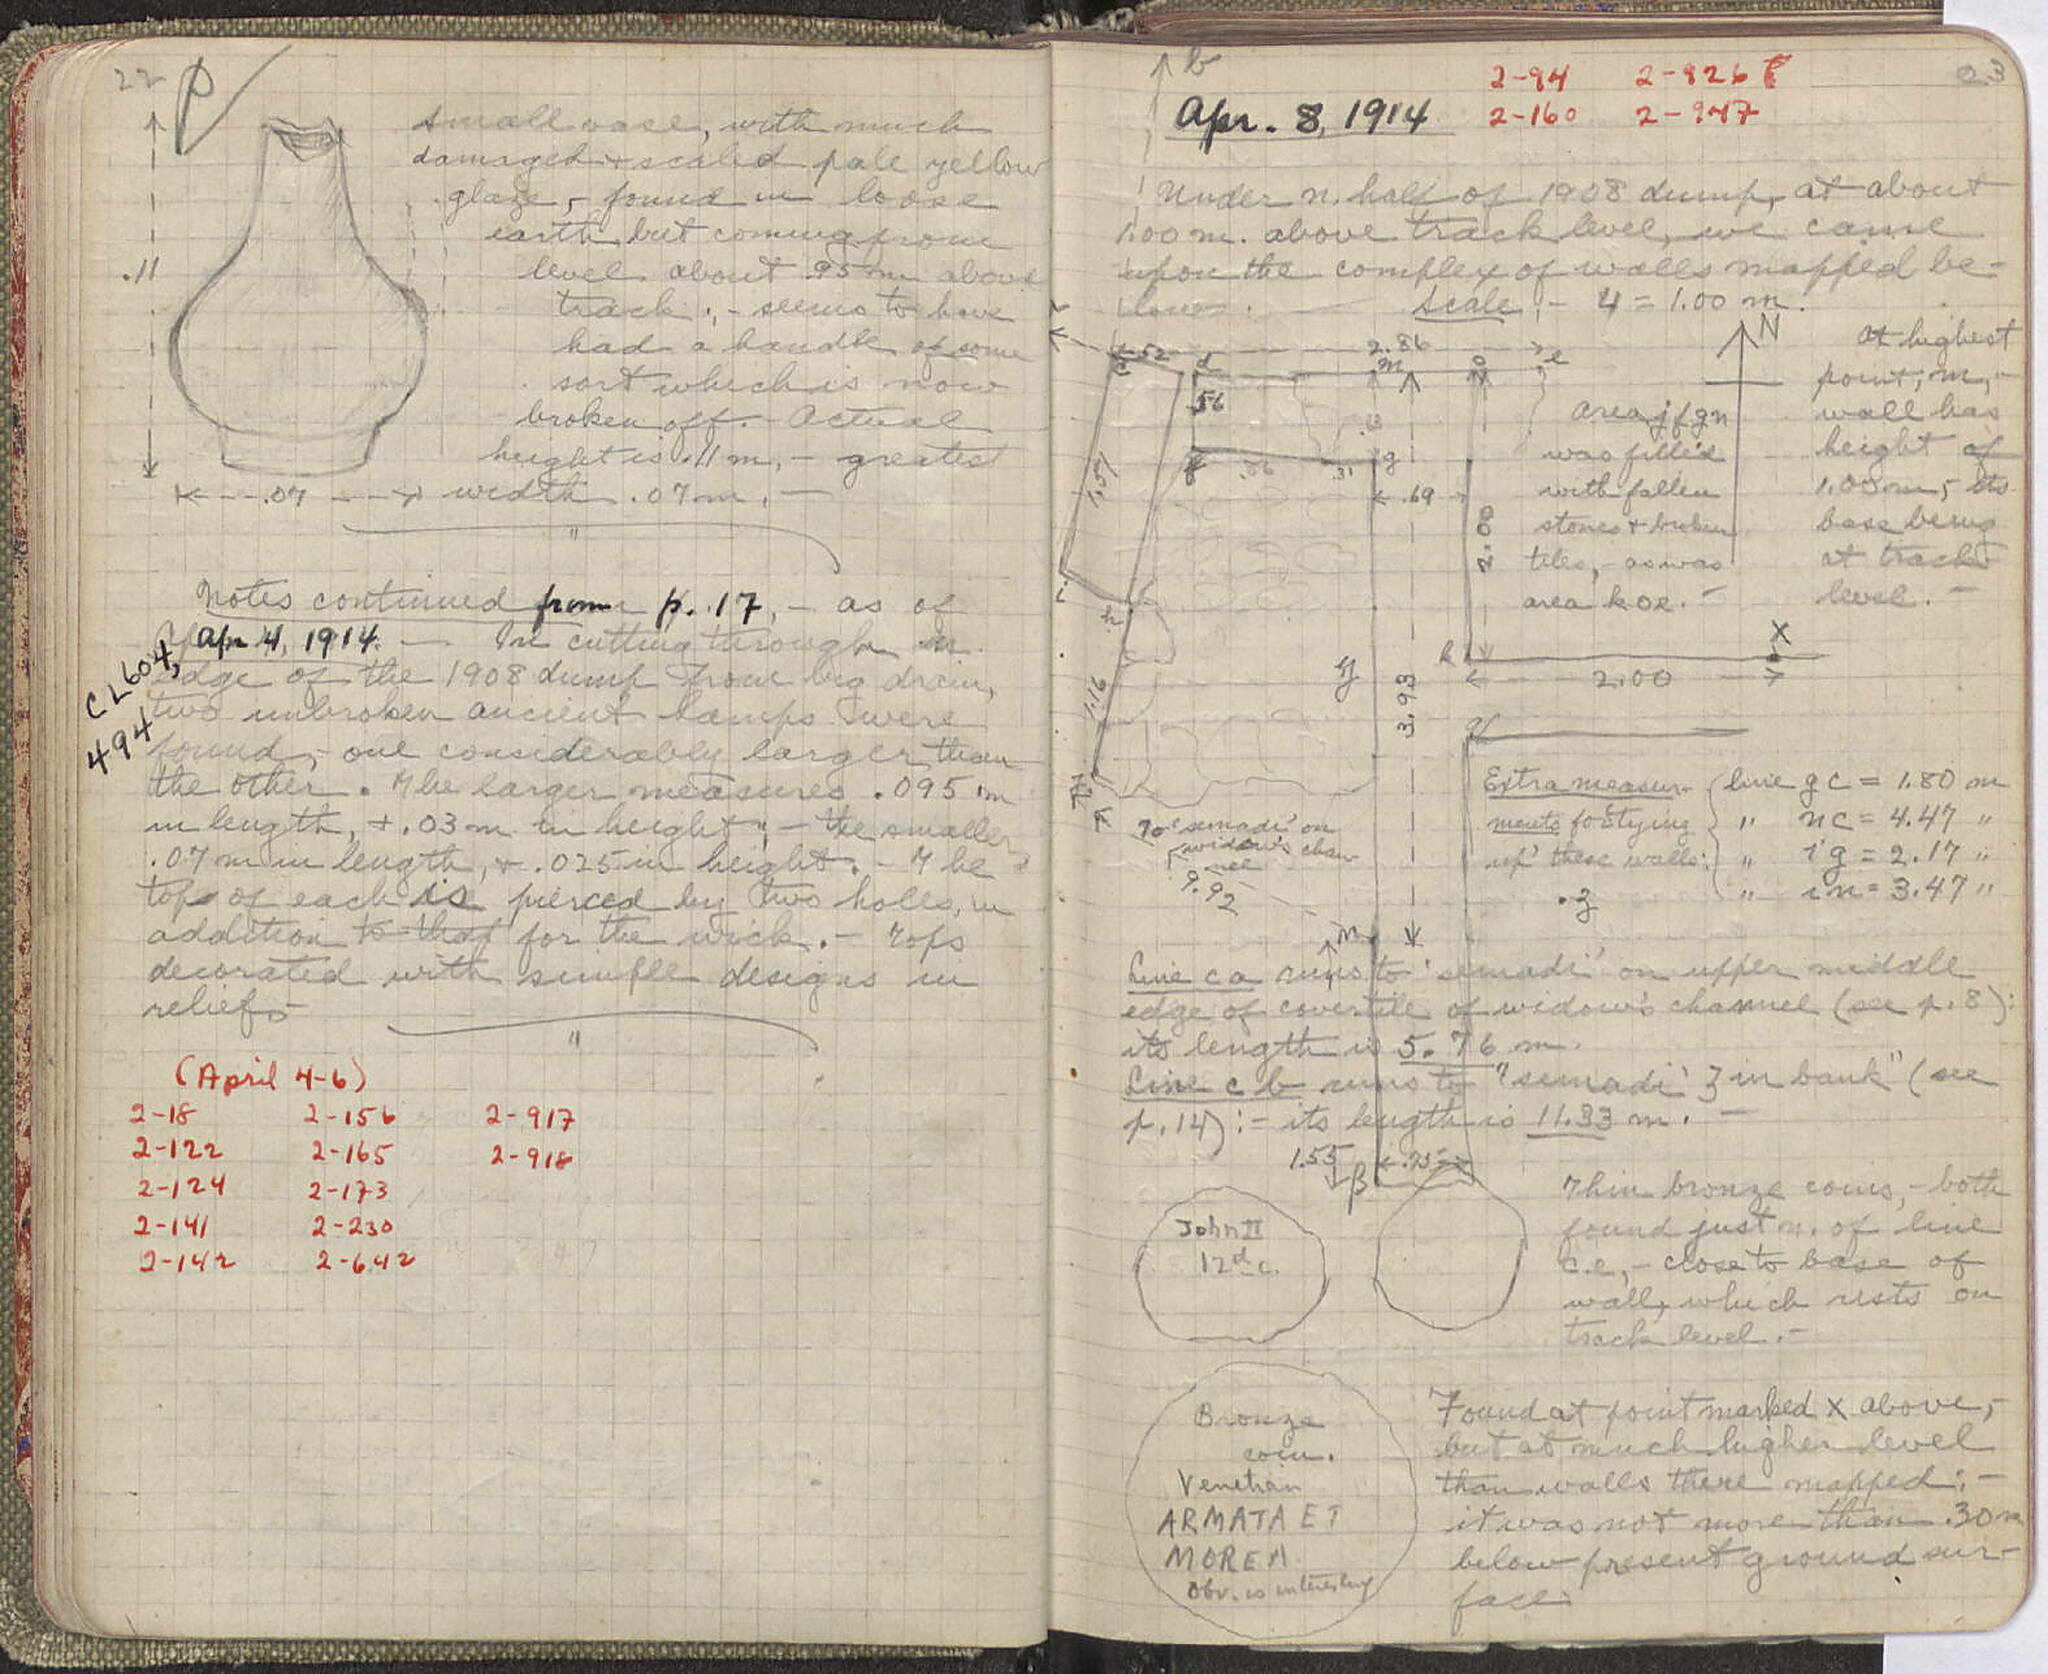 22
P
.11
small vase, with much
damaged + scaled pale yellow
glaze, - found in loose
earth, but coming from
level about .95 m above
track; - seems to have
had a handle of some
sort which is now
broken off. - Actual
height is .11 m, - greatest
width .07 m. -
.07
"
Notes continued from p. 17, - as of
Apr 4, 1914. - In cutting through n.
edge of the 1908 dump from big drain,
two unbroken ancient lamps were
found, - one considerably larger than
the other. The larger measures .095 m
in length, + .03 m in height; - the smaller
.07 m in length, + .025 in height. - The
top of each is pierced by two holes, in
addition to that for the wick. - Tops
decorated with simple designs in
relief. -
"
CL 604,
494
(April 4-6)
2-18 2-156 2-917
2-122 2-165 2-918
2-124 2-173
2-141 2-230
2-142 2-642
b
2-94 2-826
2-160 2-947
23
Apr. 8, 1914
Under n. half of 1908 dump, at about
1.00 m. above track level, we came
upon the complex of walls mapped be-
low. -
Scale, - 4 = 1.00 m.
N
.52
2.86
c d m o e
.56
.63
f .56 .31 g
.69
1.51
2.00
i
h
1.16
y
3.93
k
2.00
X
Area j f g n
was filled
with fallen
stones + broken
tiles, - as was
area k o e. -
At highest
point, m, -
wall has
height of
1.00 m, - its
base being
at track
level. -
To 'semadi' on
widow's chan-
nel
9.92
n
Extra measur-
ments for tying
up these walls:
line g c = 1.80 m
" n c = 4.47 "
" i g = 2.17 "
" i n = 3.47 "
. z
Line c a runs to 'semadi' on upper middle
edge of covertile of widow's channel (see p. 8):
its length is 5.76 m.
Line c b runs to "'semadi' } in bank" (see
p. 14): - its length is 11.33 m. -
1.55
β
.75
John II
12th c.
Thin bronze coins, - both
found just n. of line
c.e, - close to base of
wall, which rests on
track level. -
Bronze
coin.
Venetian
ARMATA ET
MOREA
Obv. is interesting
Found at point marked x above, -
but at much higher level
than walls there mapped: -
it was not more than .30 m
below present ground sur-
face.